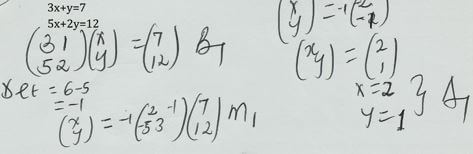 3x+y=7
5x+2y=12
(3 1
5 2)(x
y) = (7
12) B1
Det = 6-5
= -1
(x
y) = -1(2 -1
-5 3)(7
12) M1
(x
y) = -1(2
-1)
(x
y) = (2
1)
x=2
y=1 } A1